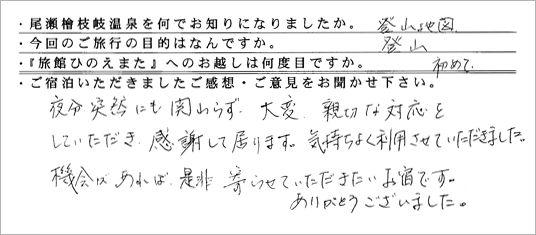 ・尾瀬檜枝岐温泉を何でお知りになりましたか。 登山地図
・今回のご旅行の目的はなんですか。 登山
・『旅館ひのえまた』へのお越しは何度目ですか。 初めて
・ご宿泊いただきましたご感想・ご意見をお聞かせ下さい。
夜分突然にも関わらず、大変、親切な対応を
していただき、感謝して居ります。気持ちよく利用させていただきました。
機会があれば、是非 寄らせていただきたいお宿です。
ありがとうございました。